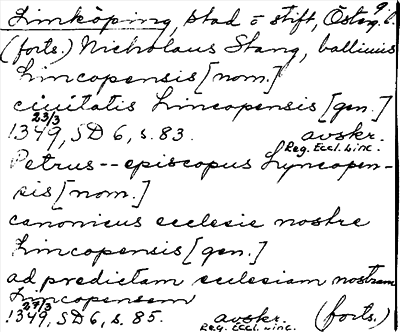 Linköping, stad o stift, Österg. 9.
(forts.) Nicholaus Stang, balliuus
Lincopensis [nom.]
ciuitatis Lincopensis [gen.]
23/3
1349, SD 6, s. 83. avskr.
Reg. Eccl. Linc.
Petrus -- episcopus Lyncopen-
sis [nom.]
canonicus ecclesie nostre
Lincopensis [gen.]
ad predictam ecclesiam nostram
Lincopensem
27/3
1349, SD 6, s. 85. avskr. (forts.)
Reg. Eccl. Linc.